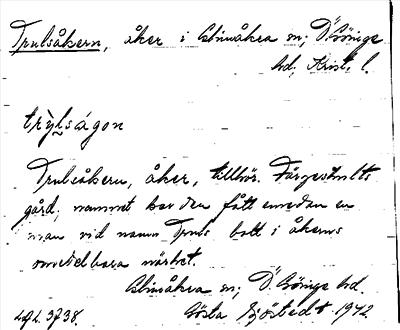 Trulsåkern, åker i Glimåkra sn; Ö. Göinge
hd; Krist. l.
trỳl̥ságon
Trulsåkern, åker, tillhör. Färgeshults
gård; namnet har den fått emedan en
man vid namn Truls bott i åkerns
omedelbara närhet.
Glimåkra sn; Ö. Göinge hd.
Gösta Sjöstedt 1942.